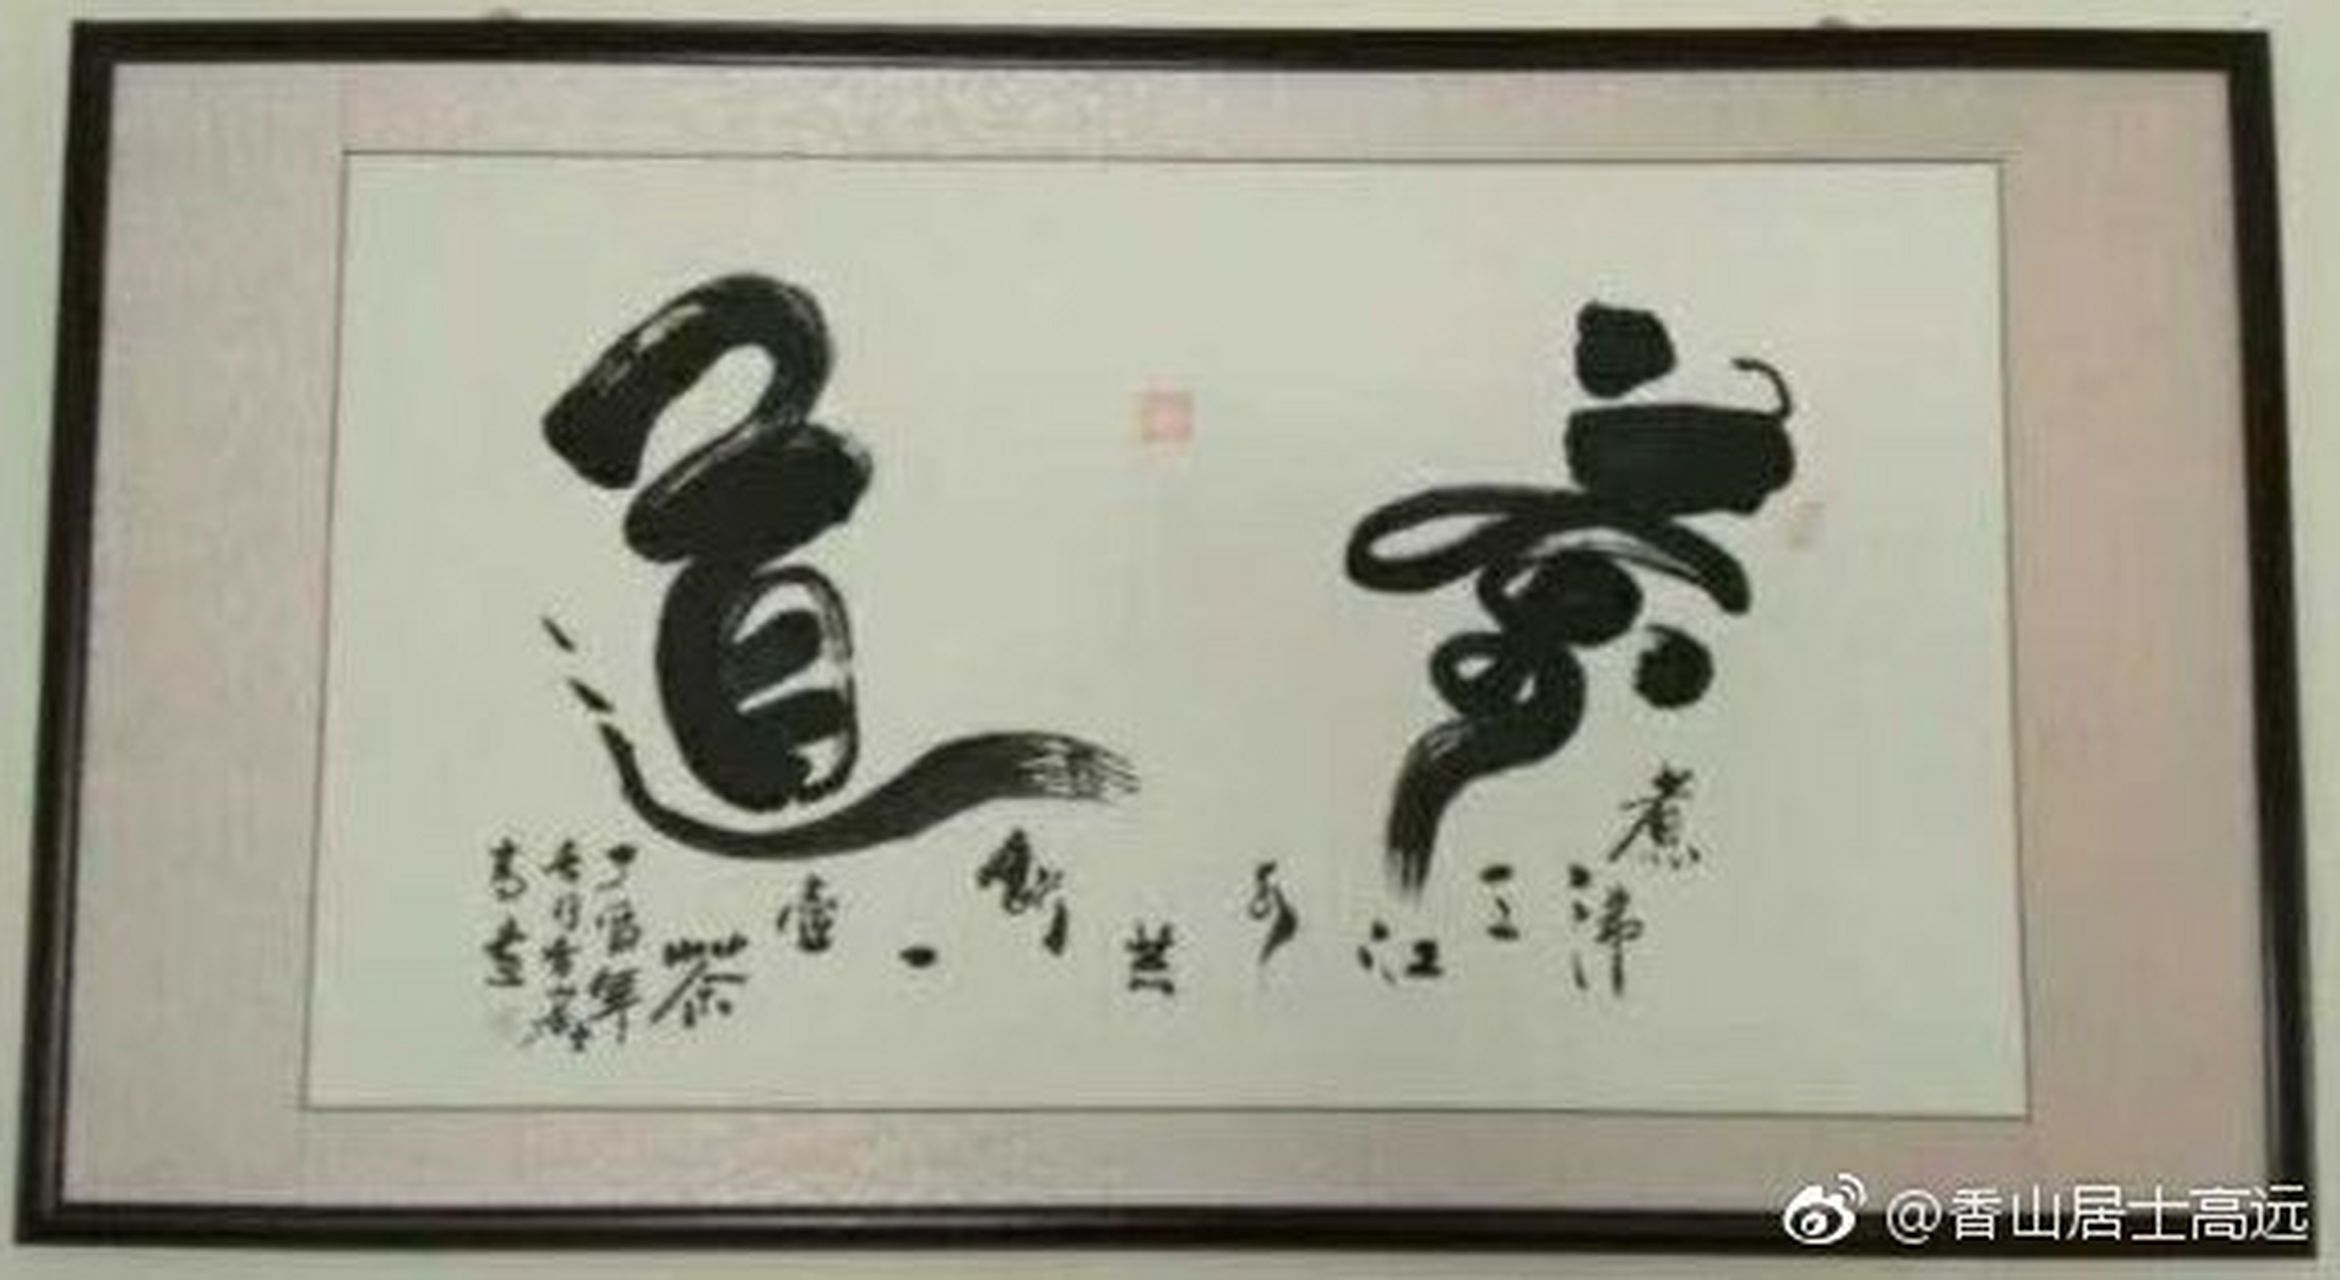 茶道
煮沸三江水共飲一壺茶
丁酉年
月香山居士
高远
@香山居士高远